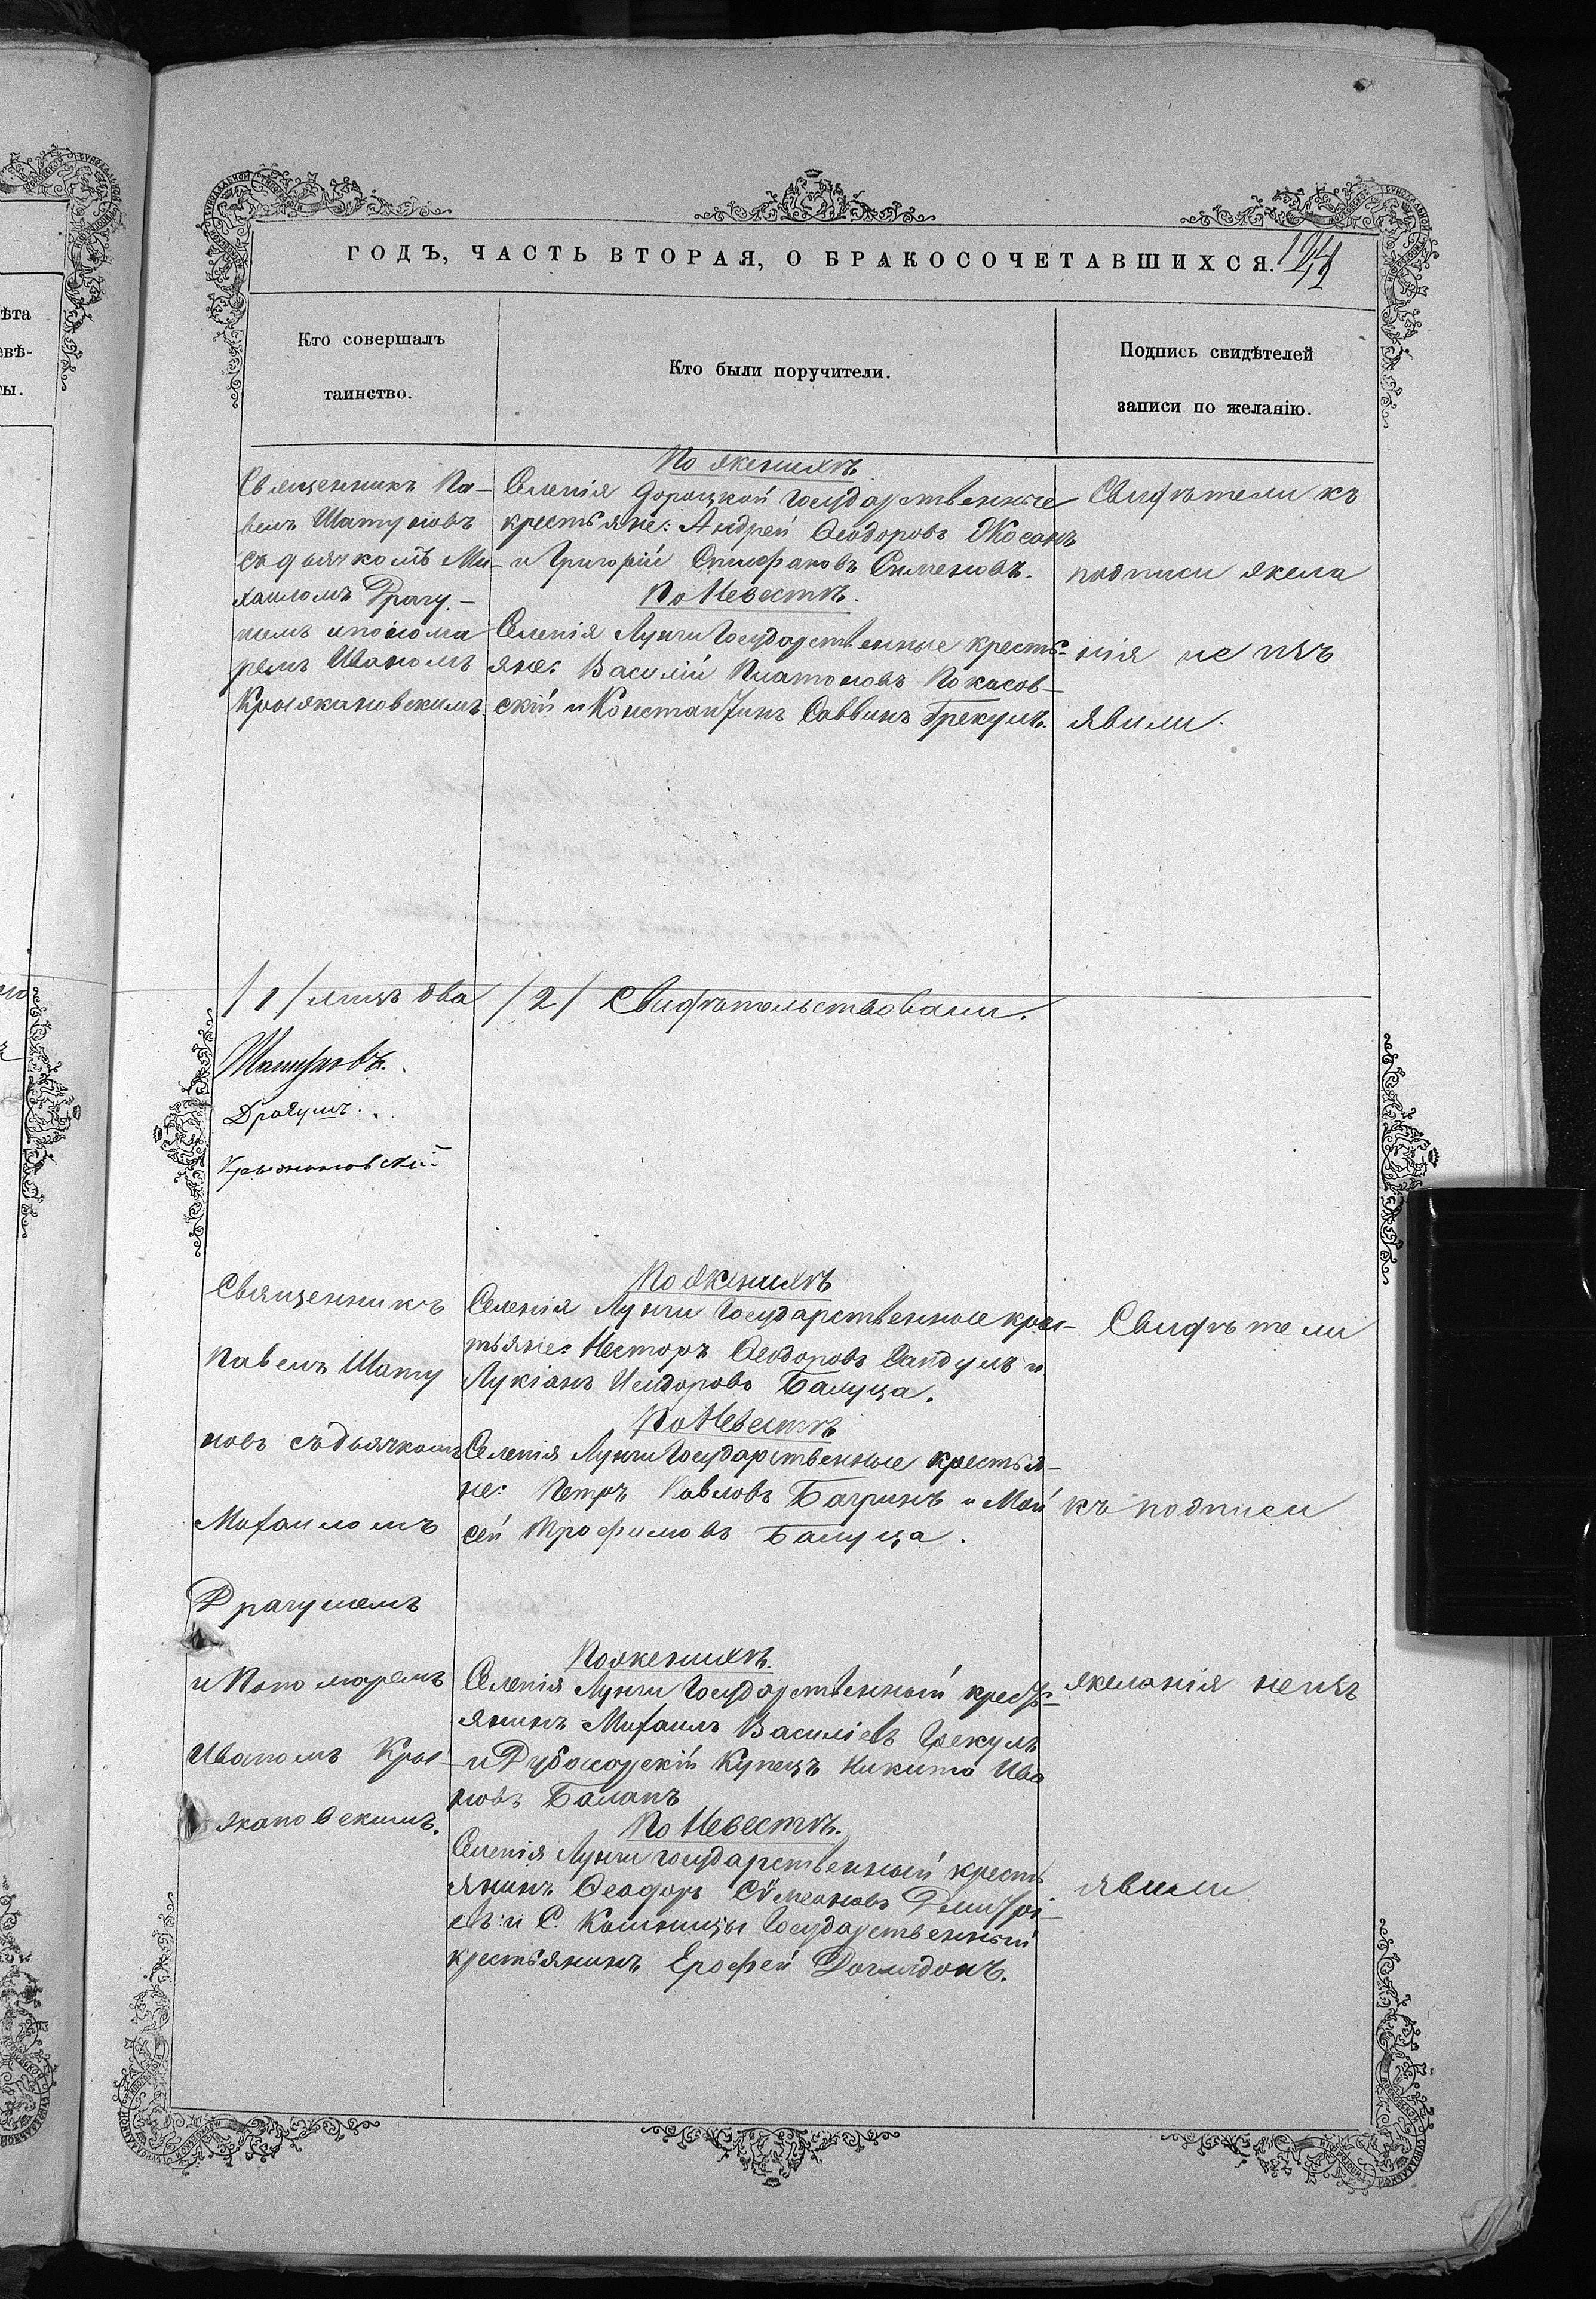 ГОДЪ, ЧАСТЬ ВТОРАЯ, О БРАКОСОЧЕТАВШИХСЯ.
Кто совершалъ
таинство.
Кто были поручители.
Подпись свидѣтелей
записи по желанію.
Священникъ Па-
велъ Шатуновъ
съ дьячкомъ Ми-
хаиломъ Драгу-
немъ и понома
ремъ Иваномъ
Крыжановскимъ.
По женихѣ
Селенія Дороцкой Государственные
крестьяне: Андрей Ѳеодоровъ Жосанъ
и Григорій Епифановъ Сименовъ.
По Невестѣ.
Селенія Лунги Государственные кресть-
яне: Василій Платоновъ Покасов-
скій и Константинъ Саввинъ Грекулъ.
Свидѣтели къ
подписи жела
нія не изъ
явили.
/1/ лицъ два
/2/ Свидѣтельствовали.
Шатуновъ.
Драгунъ.
Крыжановскій
Священникъ
Павелъ Шату
новъ съ дьячкомъ
Михаиломъ
Драгунемъ
и Пономаремъ
Иваномъ Кры-
жановскимъ.
По женихѣ
Селенія Лунги Государственные крес-
тьяне: Несторъ Ѳеодоровъ Сандулъ и
Лукіанъ Исидоровъ Балуца.
По Невестѣ
Селенія Лунги Государственные крестья-
не: Петръ Павловъ Багринъ и Мой
сей Трофимовъ Балуца.
По женихѣ.
Селенія Лунги Государственный кресть-
янинъ Михаилъ Василіевъ Грекулъ
и Дубоссарскій Купецъ Никита Ива
новъ Баланъ
По Невестѣ.
Селенія Лунги государственный кресть
янинъ Ѳеодоръ Сѵмеоновъ Димитрі-
евъ и С. Кошницы Государственный
крестьянинъ Ерофей
Свидѣтели
къ подписи
желанія не изъ
явили